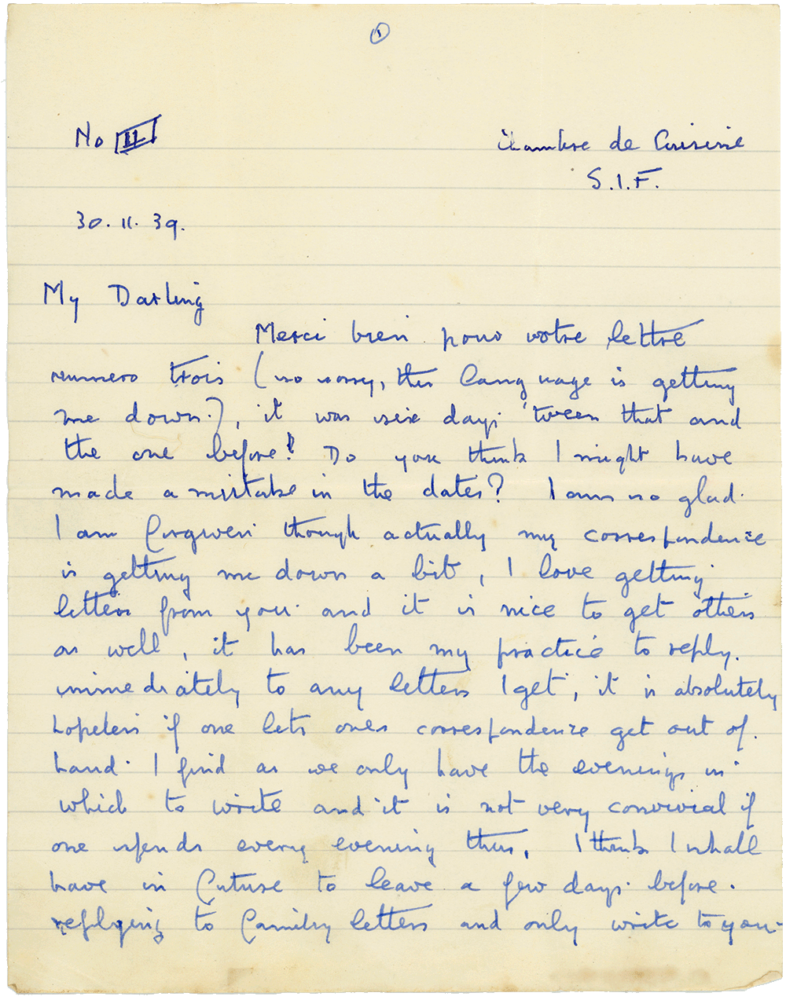 ①
No II
Chambre de Cuisine
S.I.F.
30.11.39.
My Darling
Merci bien pour votre lettre
numero trois (so sorry, this language is getting
me down.), it was six days 'tween that and
the one before! Do you think I might have
made a mistake in the dates? I am so glad.
I am forgiven though actually my correspondence
is getting me down a bit, I love getting
letters from you and it is nice to get others
as well, it has been my practice to reply.
immediately to any letters I get, it is absolutely
hopeless if one lets ones correspondence get out of.
hand. I find as we only have the evenings in
which to write and it is not very convivial if
one spends every evening thus, I think I shall
have in future to leave a few days before.
replying to family letters and only write to you